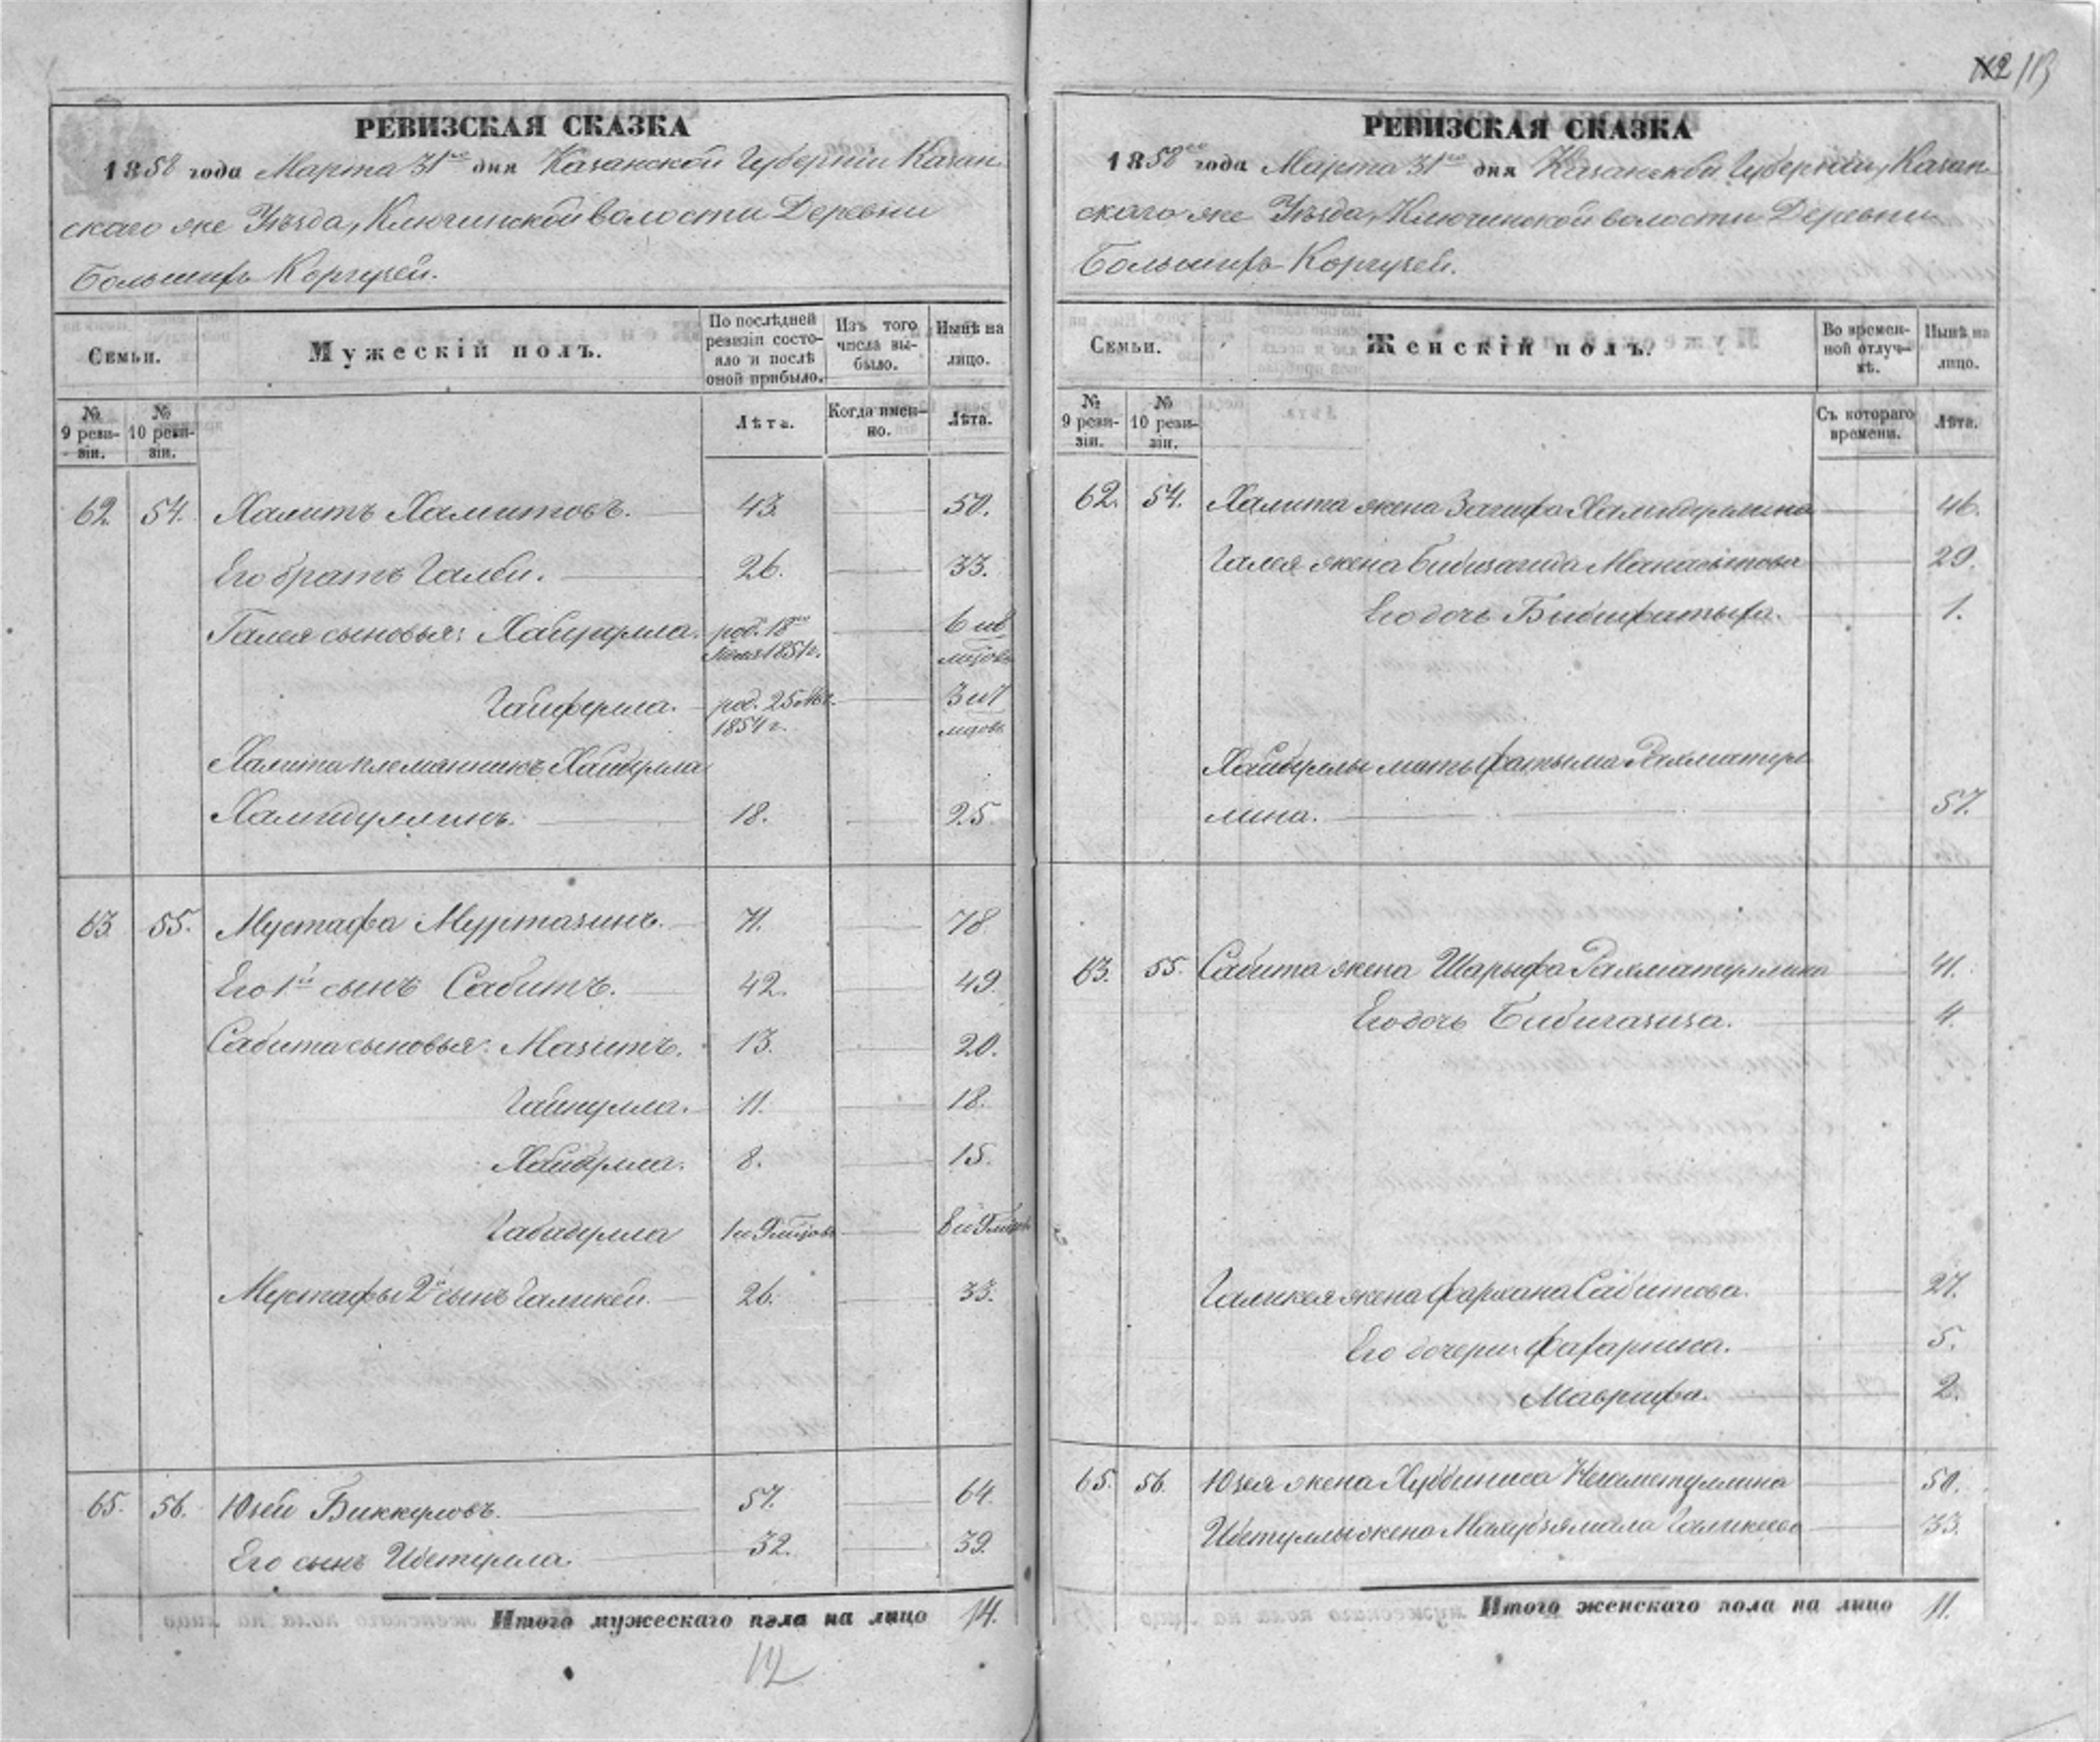 112 113
РЕВИЗСКАЯ СКАЗКА
1858 года Марта 31го дня Казанской Губернии Казан
скаго же Уѣзда, Ключинской волости Деревни
Большихъ Коргузей.
Семьи.
Мужескій полъ.
По послѣдней ревизіи состояло и послѣ оной прибыло.
Изъ того числа выбыло.
Нынѣ на лицо.
№ 9 ревизіи.
№ 10 ревизіи.
Лѣта.
Когда именно.
Лѣта.
62. 54. Халитъ Хамитовъ. 43. 50.
Его братъ Галей. 26. 33.
Галея сыновья: Хайрулла. род. 18го 1851 г. 6 и
мцовъ
род. 25 1854 г. 3 и
мцовъ
Халита племянникъ Хайбулла
Хамидуллинъ. 18. 25.
63. 55. Мустафа Муртазинъ. 71. 78
Его 1й сынъ Сабитъ. 42. 49.
Сабита сыновья: Мазитъ. 13. 20.
Гайнулла. 11. 18.
Хайбулла. 8. 15.
Габидулла 1 и 9 мцовъ 8 и 9 мцовъ
Мустафы 2й сынъ Галикей. 26. 33.
65. 56. Юзей Биккуловъ. 57. 64.
Его сынъ Ибетулла. 32. 39.
Итого мужескаго пола на лицо 14.
12
РЕВИЗСКАЯ СКАЗКА
1858го года Марта 31го дня Казанской Губерніи, Казан
скаго же Уѣзда, Ключинской волости Деревни
Большихъ Коргузей.
Семьи.
Женскій полъ.
Во временной отлучкѣ.
Нынѣ на лицо.
№ 9 ревизіи.
№ 10 ревизіи.
Съ котораго времени.
Лѣта.
62. 54. Халита жена Загифа Хамидуллина 46.
Галея жена Бибизагида 29.
Его дочь Бибифатыха. 1.
Хайбуллы мать Фатыма Рахматул
лина. 57.
63. 55. Сабита жена Шарыфа Рахматуллина 41.
Его дочь Бибигазиза. 4.
Галикея жена Фархана Сабитова. 27.
Его дочери: 5.
Маврифа. 2.
65. 56. Юзея жена Хуббиниса Негаметуллина 50.
Ибетуллы жена Галикеева 33.
Итого женскаго пола на лицо 11.